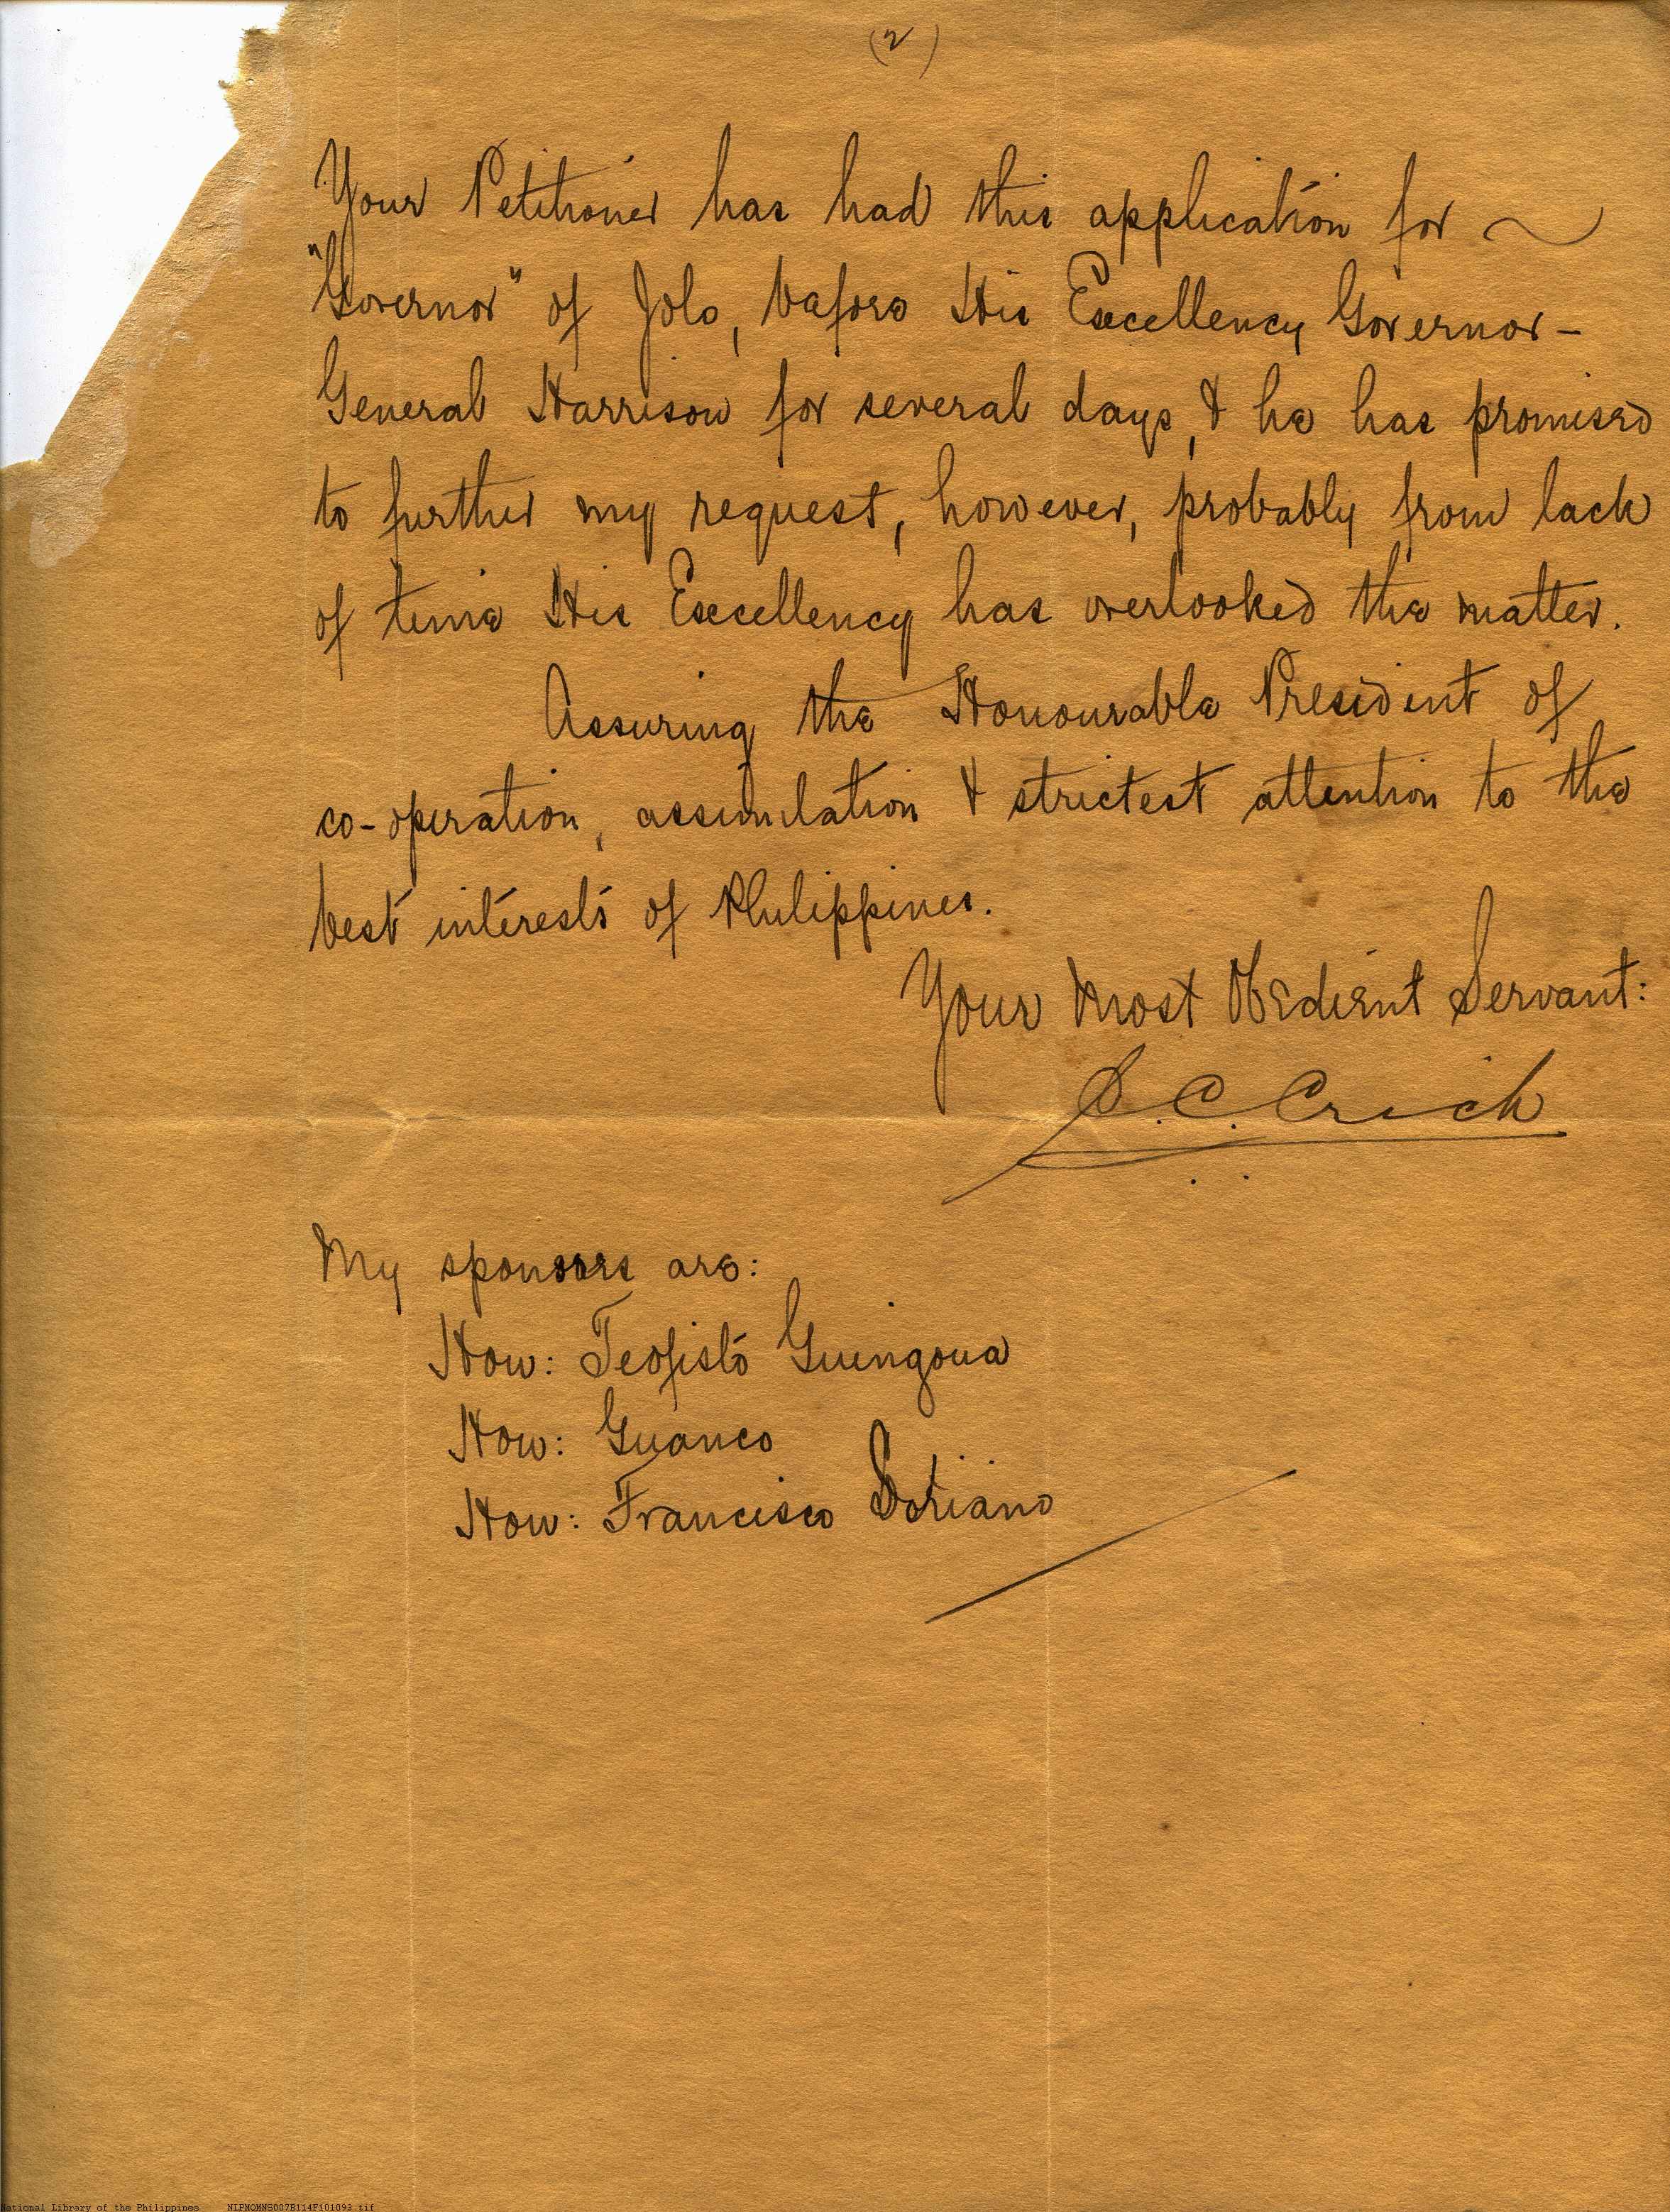 (2)
Your Petitioner has had this application for
"Governor" of Jolo, before His Excellency Governor-
General Harrison for several days, & he has promised
to further my request, however, probably from lack
of time His Excellency has overlooked the matter.
Assuring the Honourable President of
co-operation, assimilation & strictest attention to the
best interests of Philippines.
Your Most Obedient Servant:
C. Crich
My sponsors are:
Hon: Teofisto Guingona
Hon: Guanco
Hon: Francisco Soriano
National Library of the Philippines NLPMQMNS007B114F101093.tif